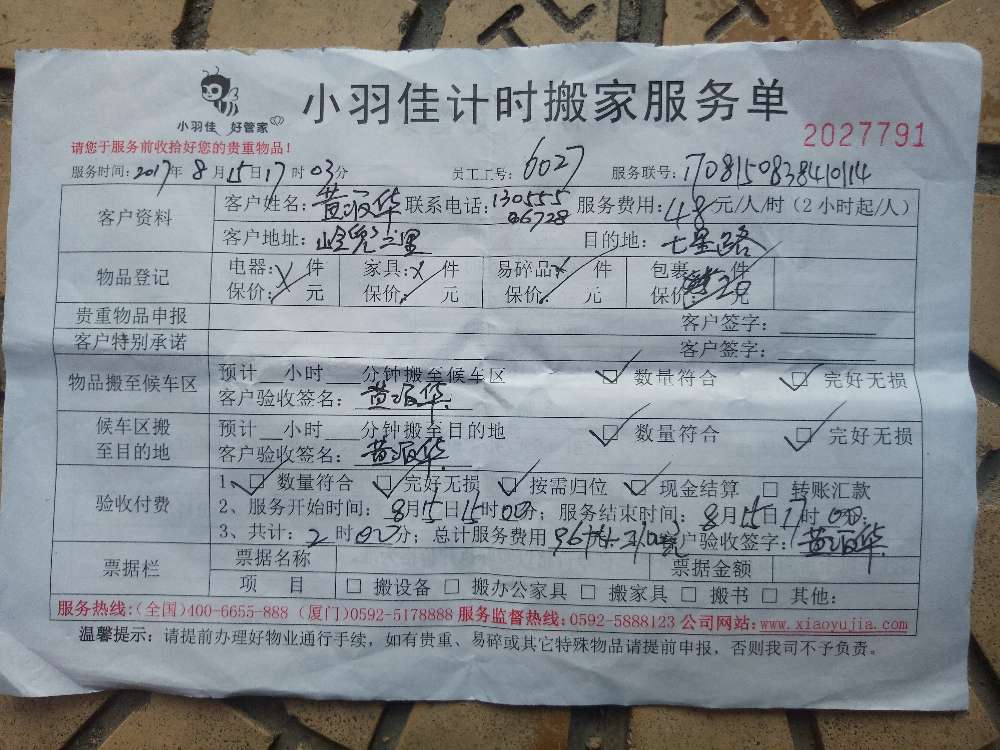 小羽佳 好管家
小羽佳计时搬家服务单
2027791
请您于服务前收拾好您的贵重物品!
服务时间: 2017年 8月15日17时03分 员工工号: 6027 服务联号: 170815083841014
客户资料 客户姓名: 黄淑华 联系电话: 13055506728 服务费用: 48元/人/时 (2小时起/人)
客户地址: 岭兜之里 目的地: 七星路
物品登记 电器: 件 家具: 件 易碎品 件 包裹 件
保价: 元 保价: 元 保价: 元 保价 元
贵重物品申报 客户签字:
客户特别承诺 客户签字:
物品搬至候车区 预计__小时___分钟搬至候车区 □ 数量符合 □ 完好无损
客户验收签名: 黄淑华
候车区搬至目的地 预计__小时___分钟搬至目的地 □ 数量符合 □ 完好无损
客户验收签名: 黄淑华
验收付费 1、□ 数量符合 □ 完好无损 □ 按需归位 □ 现金结算 □ 转账汇款
2、服务开始时间: 8月15日15时00分; 服务结束时间: 8月15日17时00分;
3、共计: 2时00分; 总计服务费用 96 客户验收签字: 黄淑华
票据栏 票据名称 票据金额
项 目 □ 搬设备 □ 搬办公家具 □ 搬家具 □ 搬书 □ 其他:
服务热线:(全国)400-6655-888 (厦门)0592-5178888 服务监督热线:0592-5888123 公司网站:www.xiaoyujia.com
温馨提示: 请提前办理好物业通行手续, 如有贵重、易碎或其它特殊物品请提前申报, 否则我司不予负责。